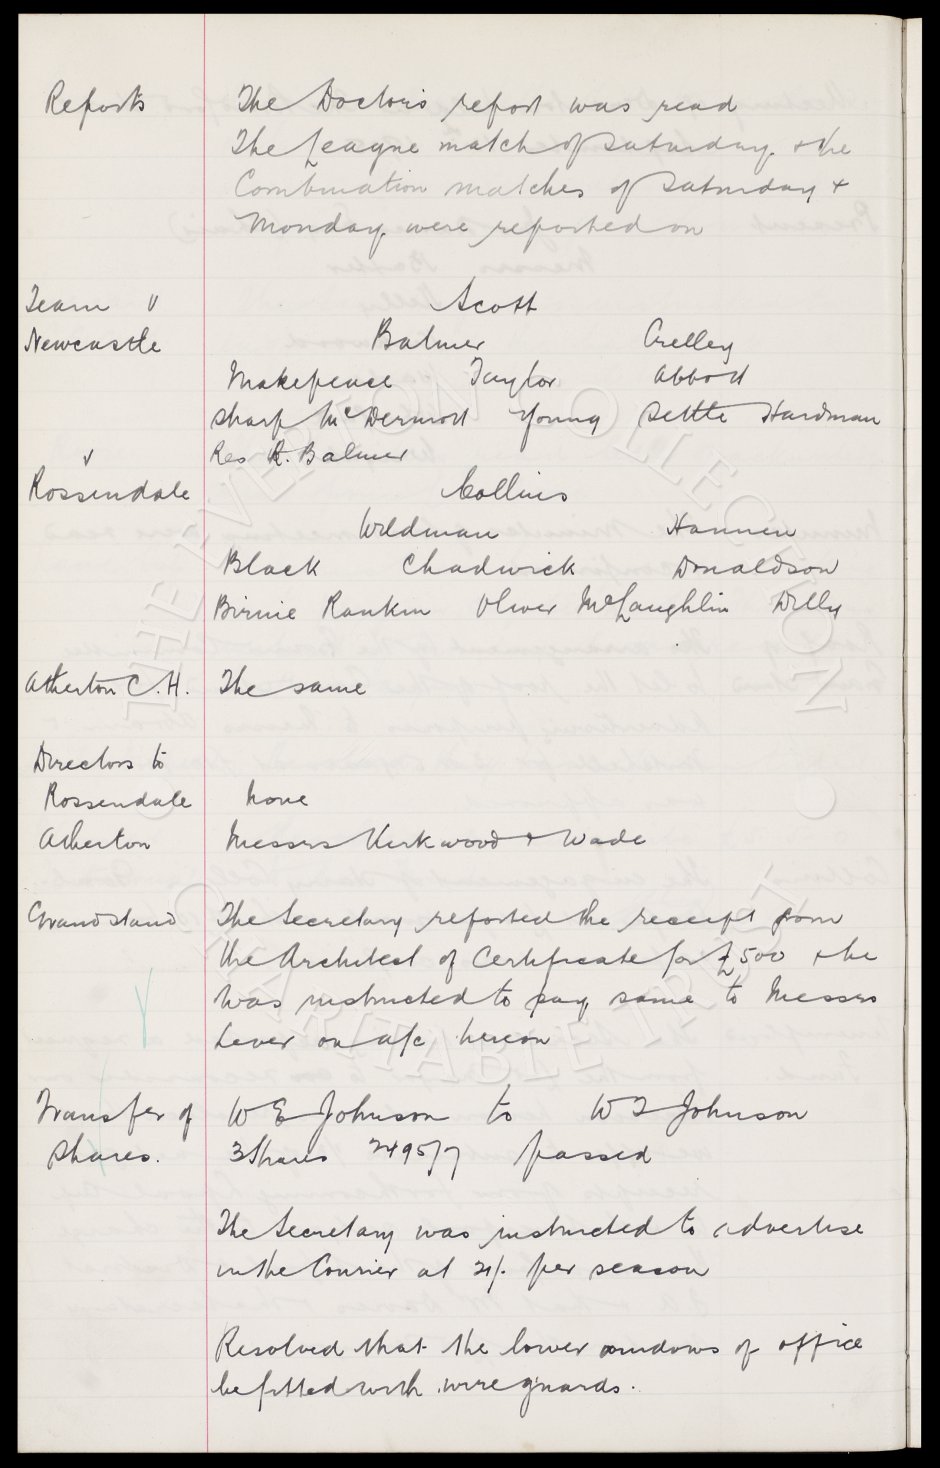 Reports The Doctor's report was read
The League match of Saturday & the
Combination matches of Saturday &
Monday were reported on
Team v Scott
Newcastle Balmer Crelley
Makepeace Taylor Abbott
Sharp McDermott Young Settle Hardman
Res R. Balmer
v
Rossendale Collins
Wildman Hannen
Black Chadwick Donaldson
Birnie Rankin Oliver McLaughlin Dilly
Atherton C.H. The same
Directors to
Rossendale None
Atherton Messrs Kirkwood & Wade
Grandstand The Secretary reported the receipt from
the Architect of Certificate for £500 & he
was instructed to pay same to Messrs
Lever on a/c hereon
Transfer of W E Johnson to W J Johnson
Shares. 3 Shares 2495/7 passed
The Secretary was instructed to advertise
in the Courier at 21/- per season
Resolved that the lower windows of office
be fitted with wire guards.
THE EVERTON COLLECTION
CHARITABLE TRUST